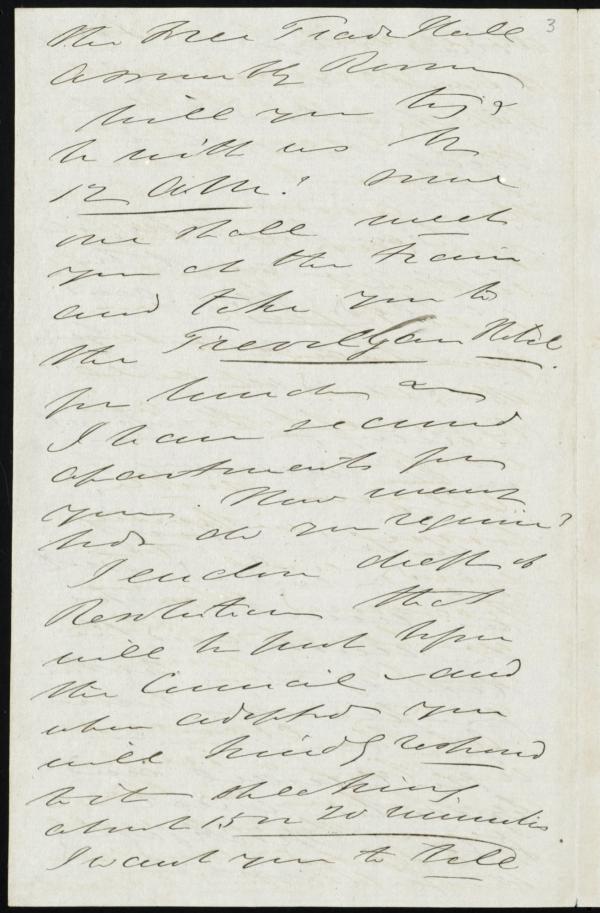 3
the Free Trade Hall
Assembly Rooms
will you try &
be with us by
12 Oclk? Some
one shall meet
you at the train
and take you to
the Trevelyan Hotel.
for lunch as
I have secured
apartments for
you. How many
beds do you require?
I enclose draft of
Resolution that
will be put before
the Council and
when adopted you
will kindly respond
by speaking
about 15 or 20 minutes.
I want you to tell